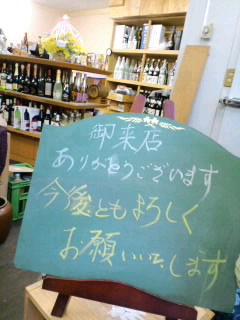 御来店
ありがとうございます
今後ともよろしく
お願い致します